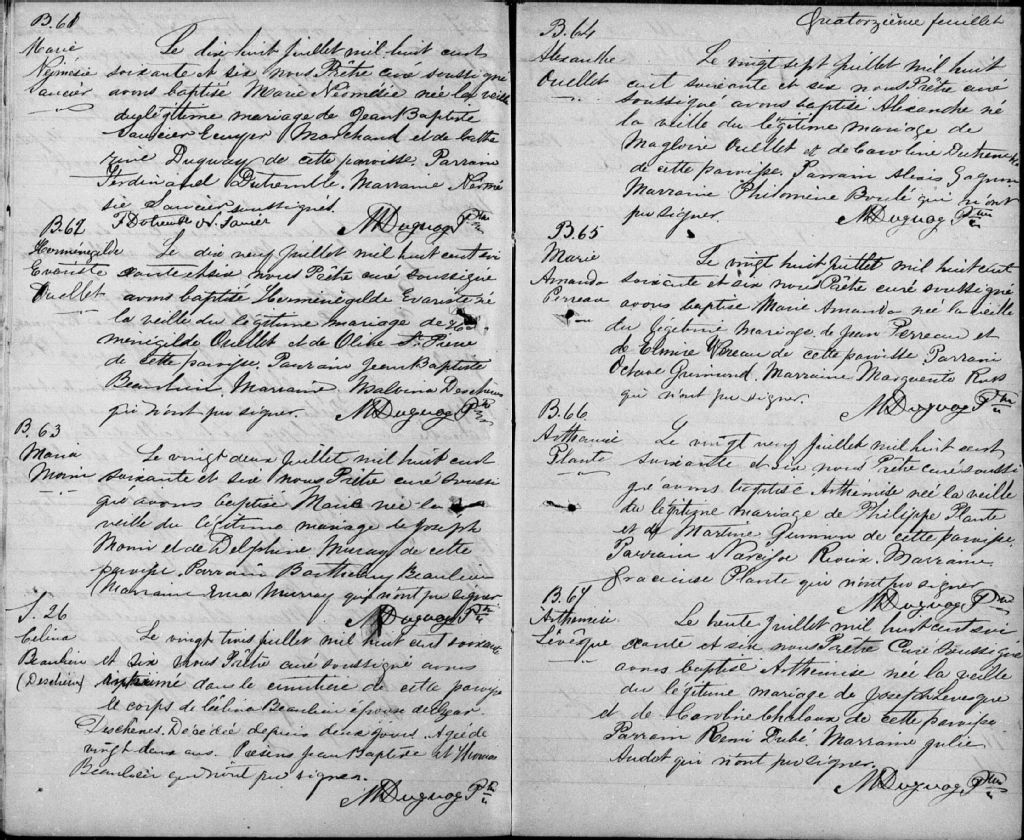 B.61
Marie
Néomésie
Saucier
Le dix huit juillet mil huit cent
soixante et six nous Prêtre curé soussigné
avons baptisé Marie Néomésie née la veille
du légitime mariage de Jean Baptiste
Saucier Ecuyer Marchand et de Cathe
rine Duguay de cette paroisse. Parrain
Ferdinand Dutremble. Marraine Néomé
sie Saucier soussignés.
MDuguay Ptre
B.62
Herménégilde
Evariste
Ouellet
Le dix neuf juillet mil huit cent soi
xante et six nous Prêtre curé soussigné
avons baptisé Herménégilde Evariste né
la veille du légitime mariage de
menigilde Ouellet et de Olive St. Pierre
de cette paroisse. Parrain Jean Baptiste
Beaulieu. Marraine Malvina Deschenes
qui n'ont pu signer. MDuguay Ptre
B.63
Maria
Morin
Le vingt deux juillet mil huit cent
soixante et six nous Prêtre curé soussi
gné avons baptisé Maria née la
veille du légitime mariage de Joseph
Morin et de Delphine Murray de cette
paroisse. Parrain Barthelmy Beaulieu
Marraine Murray qui n'ont pu signer
MDuguay Ptre
S. 26
Célina
Beaulieu
(Deschènes)
Le vingt trois juillet mil huit cent soixante
et six nous Prêtre curé soussigné avons
inhumé dans le cimetière de cette paroisse
le corps de Célina Beaulieu épouse de
Deschenes. Décédée depuis deux jours. Agée de
vingt deux ans. Présens Jean Baptiste et Thomas
Beaulieu qui n'ont pu signer.
MDuguay Ptre
Quatorzième feuillet
B.64
Alexandre
Ouellet
Le vingt sept juillet mil huit
cent soixante et six nous Prêtre curé
soussigné avons baptisé Alexandre né
la veille du légitime mariage de
Magloire Ouellet et de Caroline
de cette paroisse. Parrain Alexis Gagnon
Marraine Philomène Boulé qui n'ont
pu signer. MDuguay Ptre
B.65
Marie
Amanda
Perreau
Le vingt huit juillet mil huit cent
soixante et six nous Prêtre curé soussigné
avons baptisé Marie Amanda née la veille
du légitime mariage de Jean Perreau et
de Elmire Vereau de cette paroisse Parrain
Octave Guimond. Marraine Marguerite Ross
qui n'ont pu signer.
MDuguay Ptre
B.66
Arthémise
Plante
Le vingt neuf juillet mil huit cent
soixante et six nous Prêtre curé soussi
gné avons baptisé Arthémise née la veille
du légitime mariage de Philippe Plante
et de Martine de cette paroisse.
Parrain Narcisse Rioux. Marraine
Gracieuse Plante qui n'ont pu signer
MDuguay Ptre
B.67
Arthémise
Lévêque
Le trente juillet mil huit cent soi
xante et six nous Prêtre Curé soussigné
avons baptisé Arthémise née la veille
du légitime mariage de Joseph Levesque
et de Caroline Chaloux de cette paroisse
Parrain Remi Dubé. Marraine Julie
Audet qui n'ont pu signer.
MDuguay Ptre